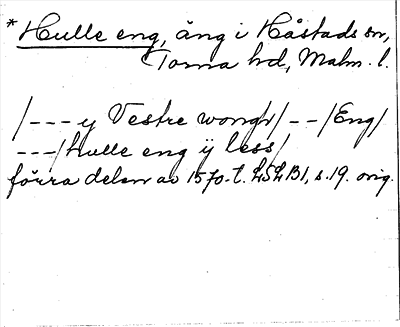 *Hulle eng, äng i Håstads sn,
Torna hd, Malm. l.
/--- y Vestre wongh/--/Eng/
---/hulle eng ÿ less/
förra delen av 1570-t. LSLB1, s. 19. orig.